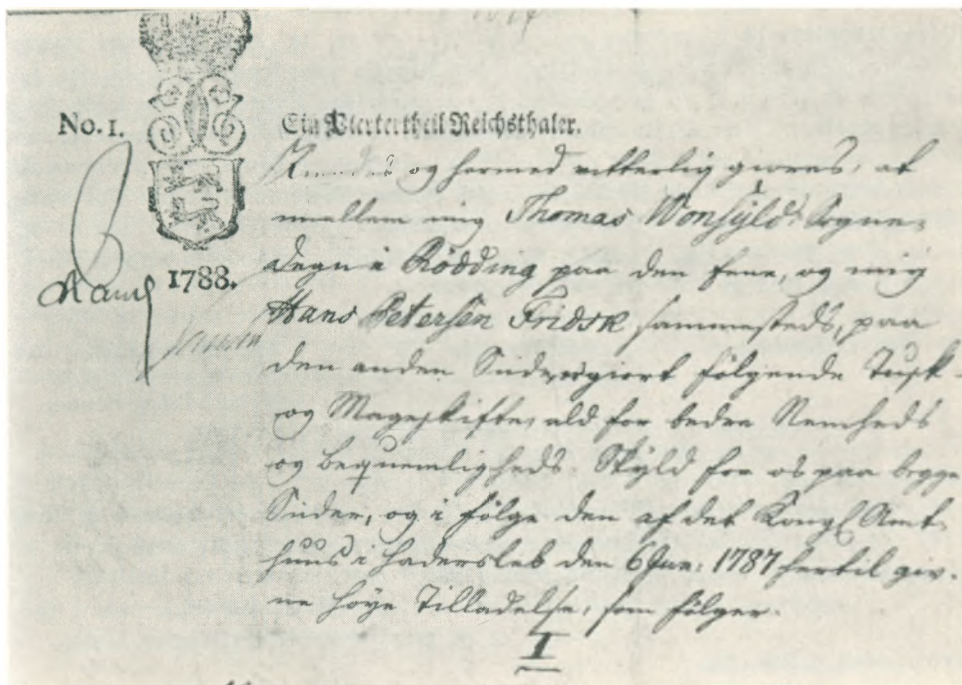 No. 1.
Ein Viertertheil Reichsthaler.
1788.
og hermed vitterlig giøres, at
imellem mig Thomas Wonsÿld: Sogne-
degn i Rödding paa den eene, og mig
Hans Petersen Fridsk sammesteds, paa
den anden Siide, er giort følgende Tusk-
og Mageskifte, ald for bedre Nemheds
og bequemligheds Skÿld for os paa begge
Siider, og i følge den af det Kongl Amt-
huus i Hadersleb den 6 Jun: 1787 hertil giv-
ne høye Tilladelse, som følger.
I